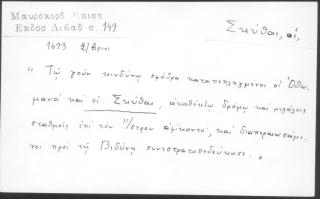 Μαυροκορδ Επιστ
Εκδοσ Λιβαδ σ. 149
Σκύθαι, οἱ,
1673 2/βριου
"Τῷ γοῦν κινδύνῳ σφόδρα καταπεπληγμένοι οἱ Ὀθω.
μανοὶ καὶ οἱ Σκύθαι, ἀκαθέκτῳ δρόμῳ καὶ μεγάλοις
σταθμοῖς ἐπὶ τὸν Ἴστρον ἀφίκοντο, καὶ διαπεραιωσάμε
νοι πρὸς τῇ Βιδύνῃ συνεστρατοπεδεύκασι. "